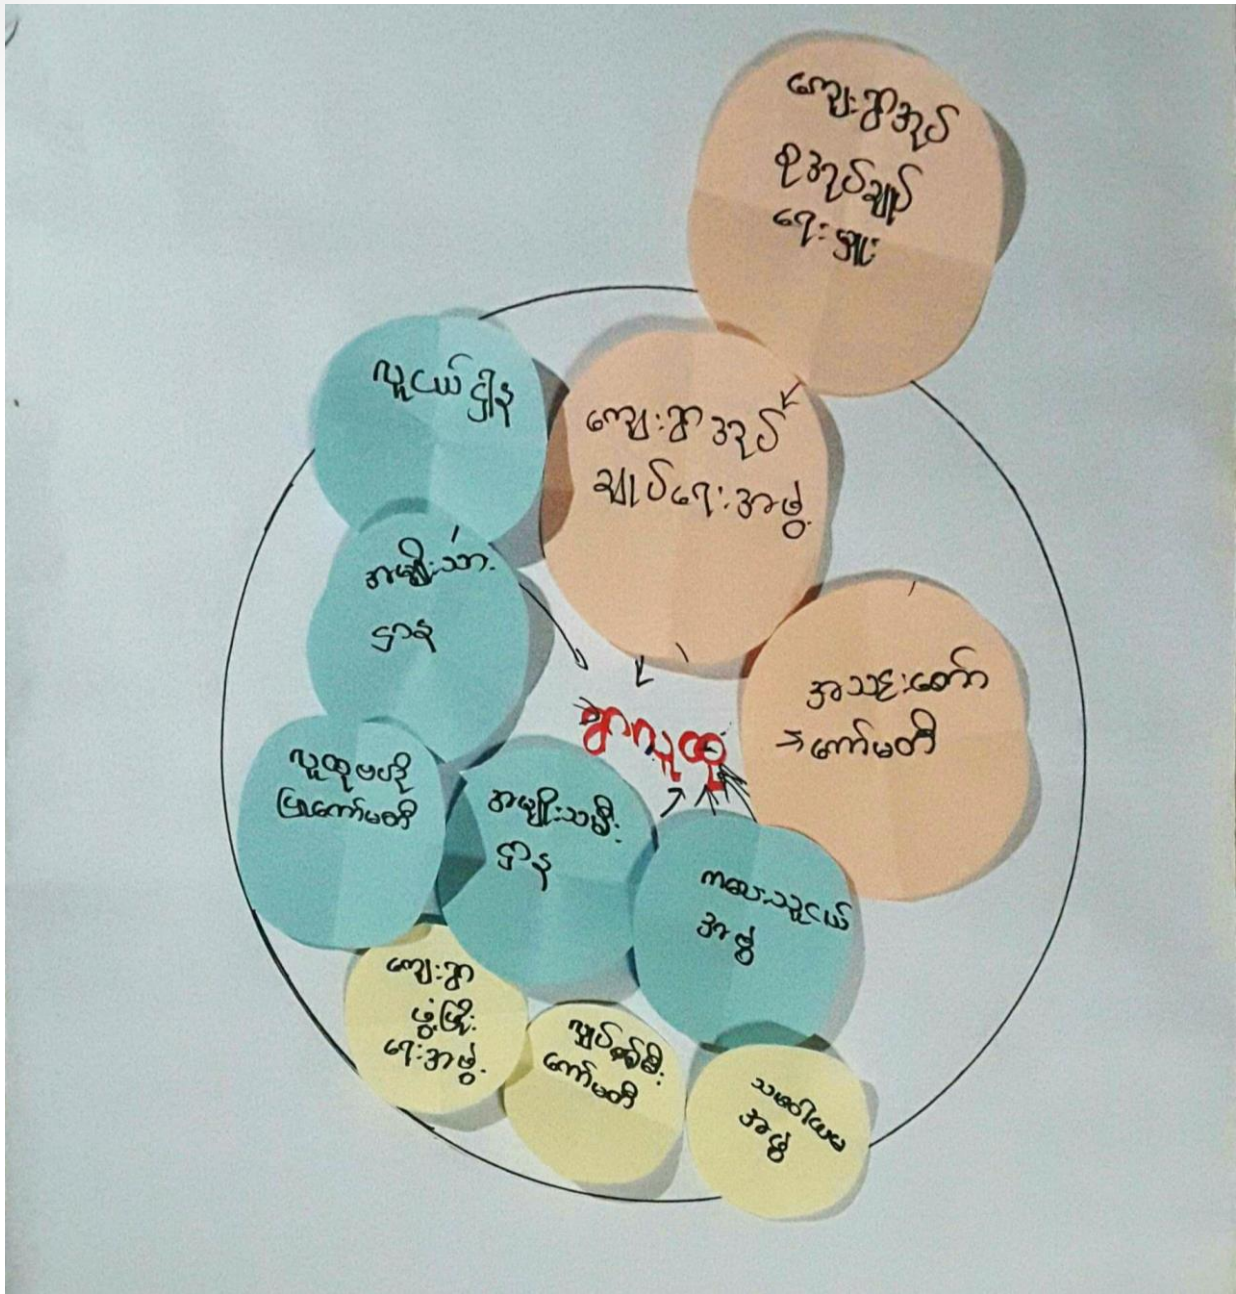 ကျေးရွာအုပ်
စုအုပ်ချုပ်
ရေးမှူး
လူငယ်ဌါန
ကျေးရွာအုပ်
ချုပ်ရေးအဖွဲ့
အမျိုးသား
ဌာန
အသင်းတော်
ကော်မတီ
ရွာလူထု
လူထုဗဟို
ပြုကော်မတီ
အမျိုးသမီး
ဌာန
ကလေးသူငယ်
အဖွဲ့
ကျေးရွာ
ဖွံ့ဖြိုး
ရေးအဖွဲ့
လျှပ်စစ်မီး
ကော်မတီ
အဖွဲ့